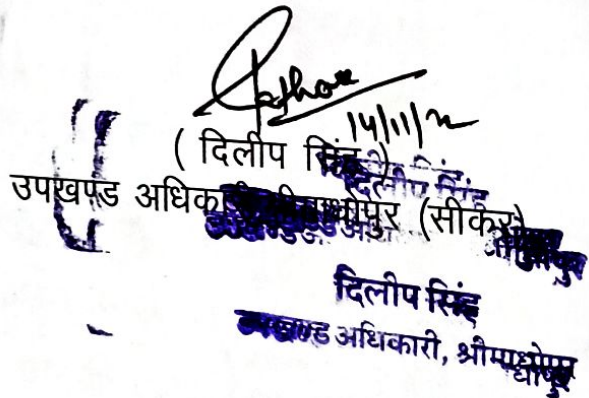 Rathore
14/11/22
( दिलीप सिंह )
उपखण्ड अधिकारी श्रीमाधोपुर (सीकर)
दिलीप सिंह
दिलीप सिंह
उपखण्ड अधिकारी, श्रीमाधोपुर